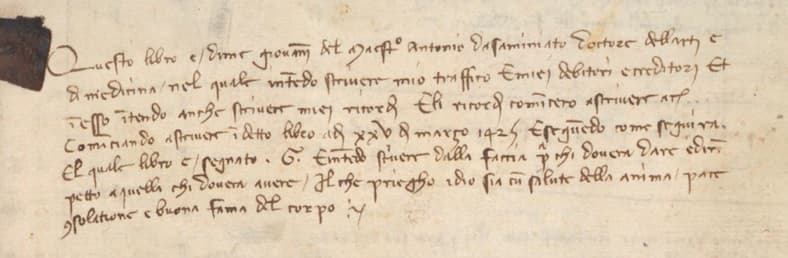 Questo libro e, dime giovañi del Maestº Antonio dasaminiato doctore dellarti e
di medicina, nel quale intēdo scrivere mio traffico E miei debitori e creditori Et
ī esso ītendo anche scrivere miei ricordi E li ricordi comīcero a scrivere a c.
Cominciando a scrivere ī detto libro adi xxv di março 142 Eseguēdo come seguira.
El quale libro e, segnato . G. E intēdo scrivere dalla faccia p̄ chi dovera dare e dirī
petto a quella chi dovera avere, Il che priegho idio sia cū salute della anima, pace
ꝯsolatione e buona fama del corpo